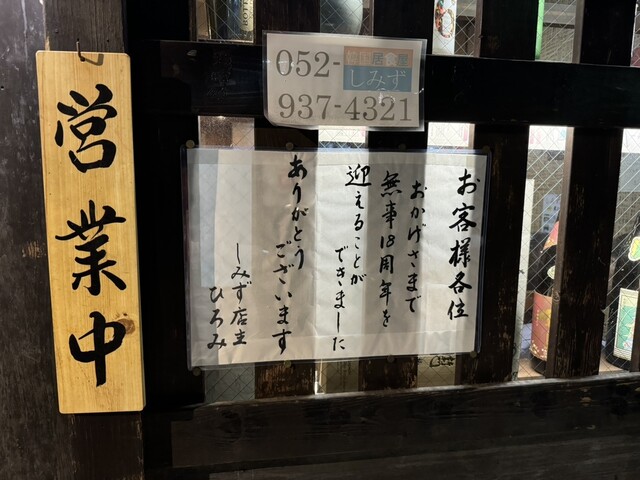 営業中
052-
937-4321
居酒屋
しみず
お客様各位
おかげさまで
無事18周年を
迎えることが
できました
ありがとう
ございます
しみず店主
ひろみ